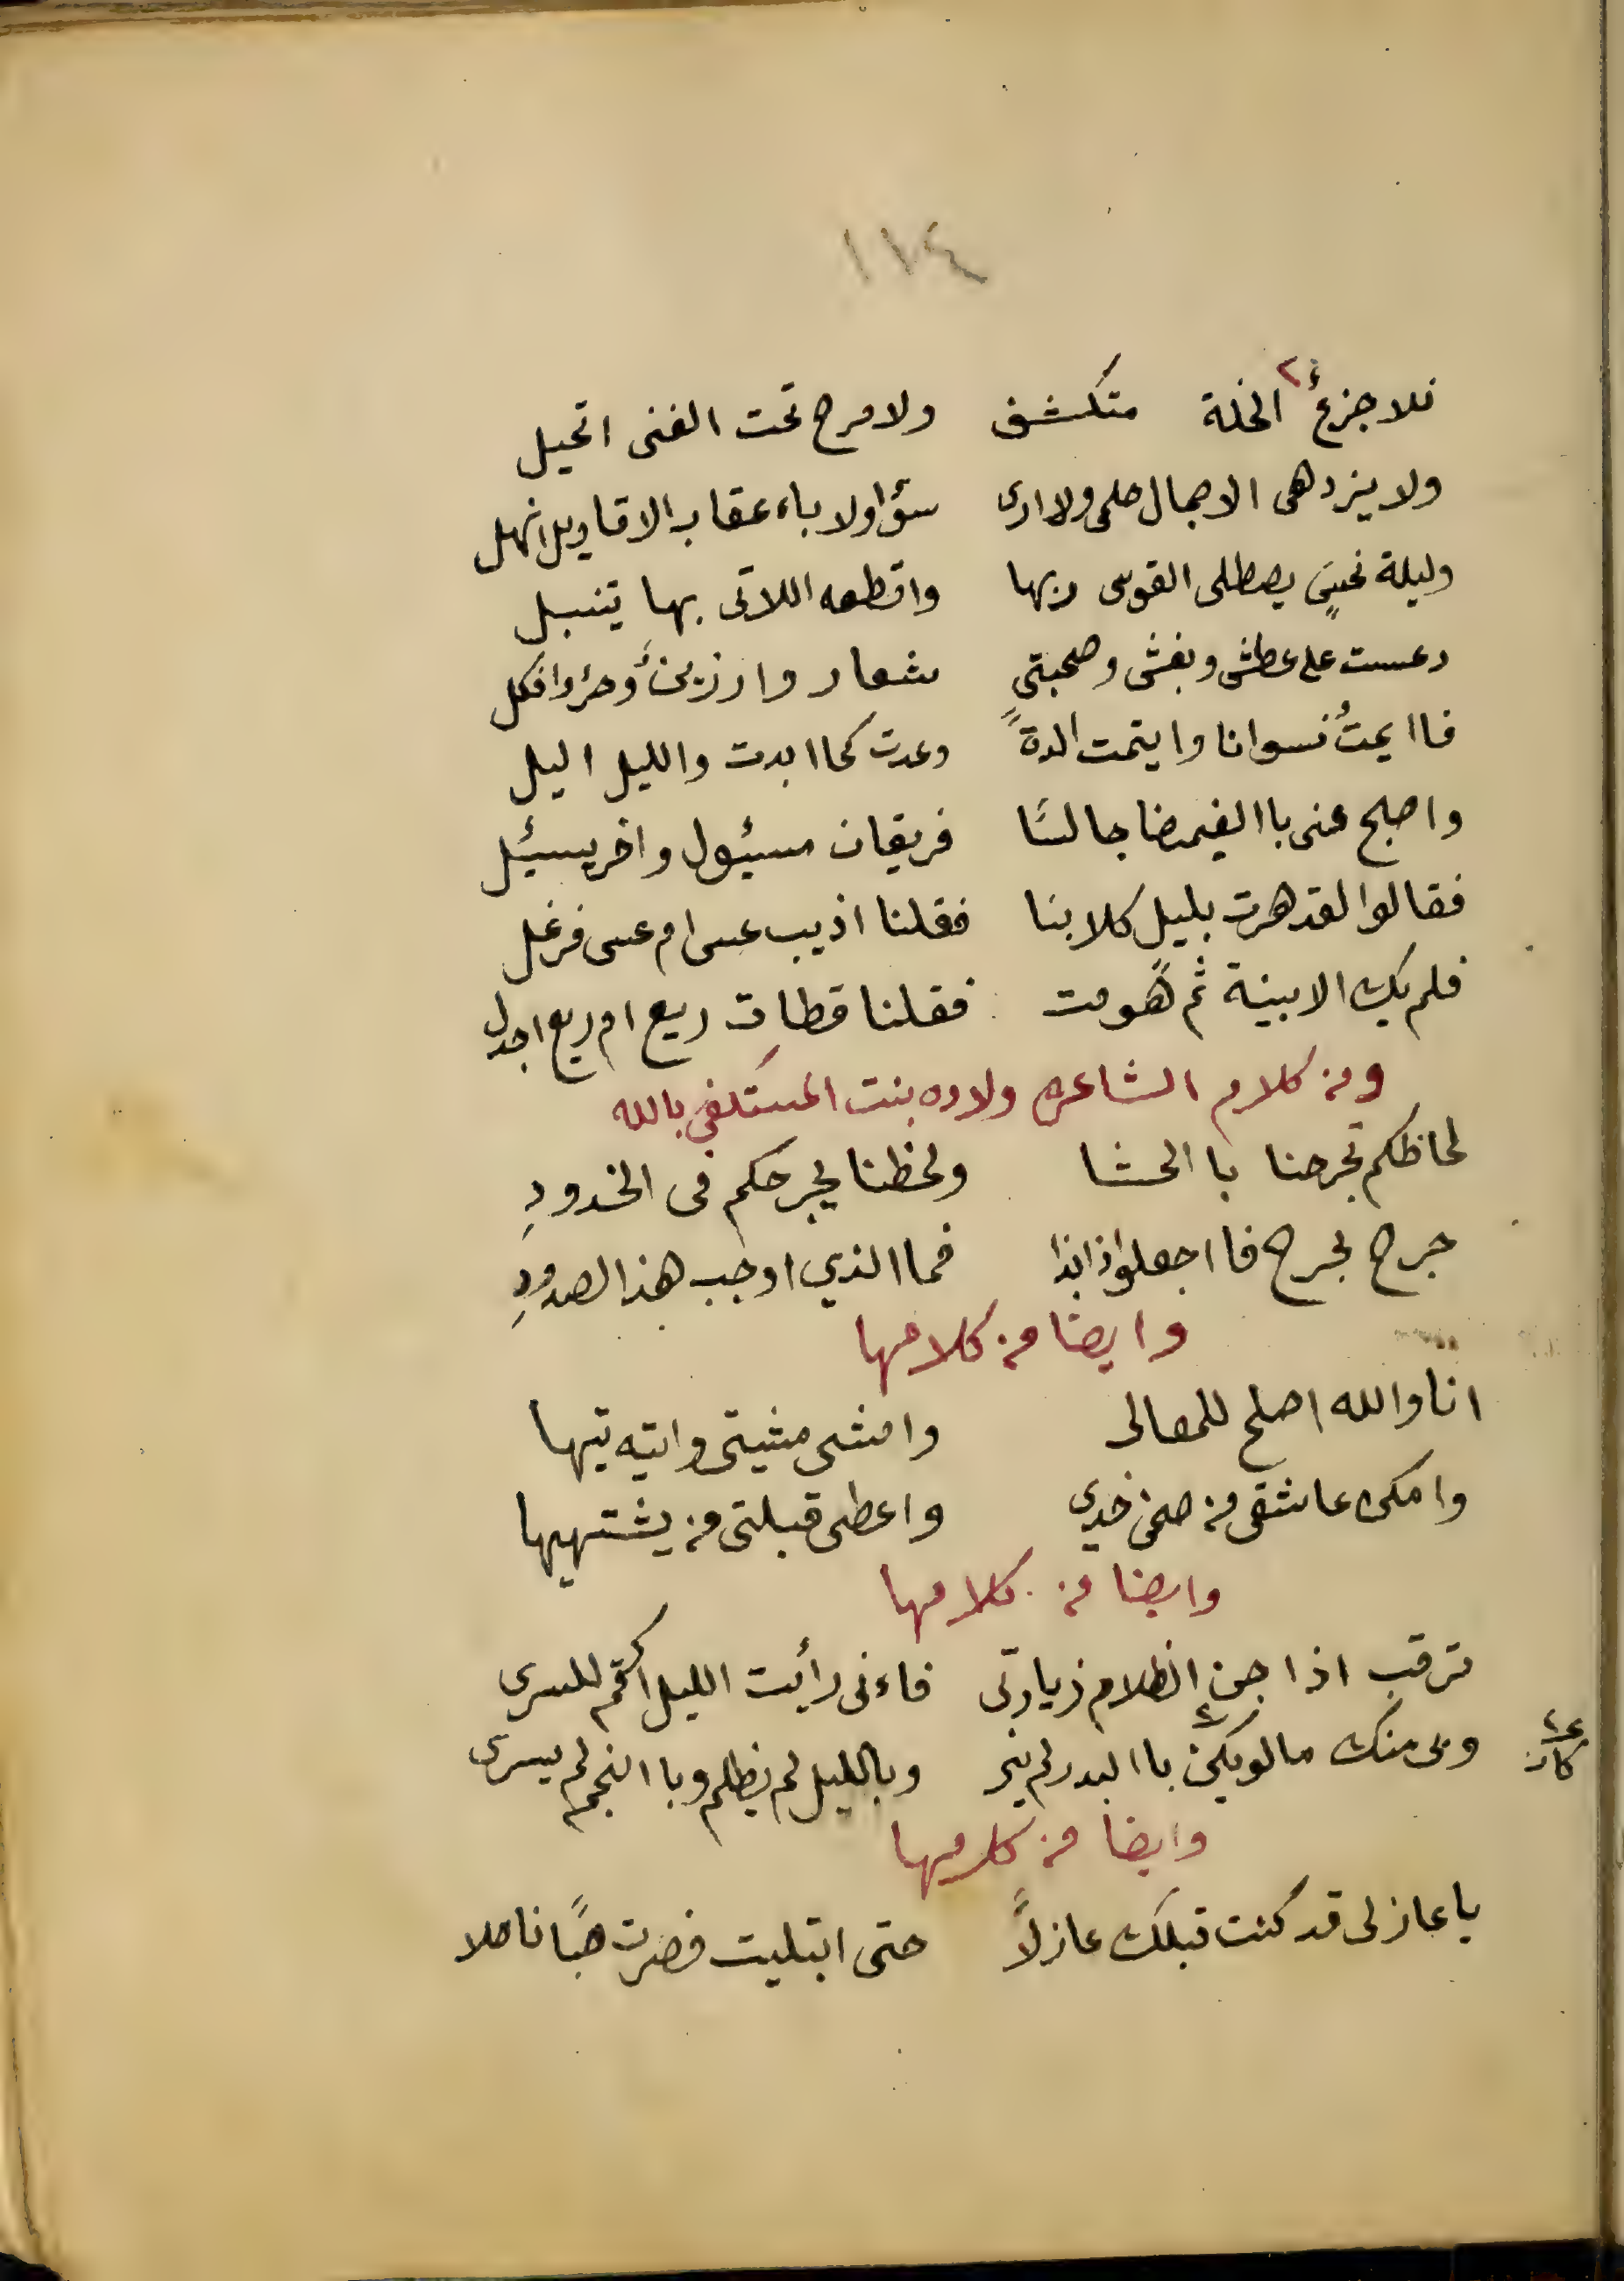 ١٧٤
فلا جزعٌ الخلة متكشف ولا مرح تحت الغنى اتحيل
ولا يزدهى الاجمال حلمى ولا ارى سؤا ولا باء عقاب الاقاويل انهل
وليلة نحسٍ يصطلى القوس ربها واقطعه اللاتى بها يتنبل
دعست على عطش وبغش وصحبتي شعار وارزيز ووجر وافكل
فاايمتُ نسوانا وايتمت الدةً وعدت كما ابدت والليل اليل
واصبح عنى باالغيمضا جالسًا فريقان مسئول واخر يسئل
فقالوا لقد هرت بليل كلابنا فقلنا اذيب عسى ام عسى فرغل
فلم يك الا بينة ثم هومت فقلنا قطات ريع ام ريع اجدل
ومن كلام الشاعره ولاده بنت المستكفي بالله
لحاظكم تجرحنا باالحشا ولحظنا يجرحكم فى الخدودِ
جرح بجرح فااجعلوا ذا بذا فما الذي اوجب هذا الصدودِ
وايضا من كلامها
انا والله اصلح للمعالى وامشى مشيتى واتيه تيها
وامكن عاشقى من صحن خدي واعطى قبلتى من يشتهيها
وايضا من كلامها
ترقب اذا جن الظلام زيارتى فاءنى رأيت الليل اكتم للسرى
وبى منك مالو يكن باالبدر لم ينر وباالليل لم يظلم وباالنجم لم يسرى
كان
وايضا من كلامها
يا عاذلى قد كنت قبلك عاذلاً حتى ابتليت فصرت صبًا ناحلا